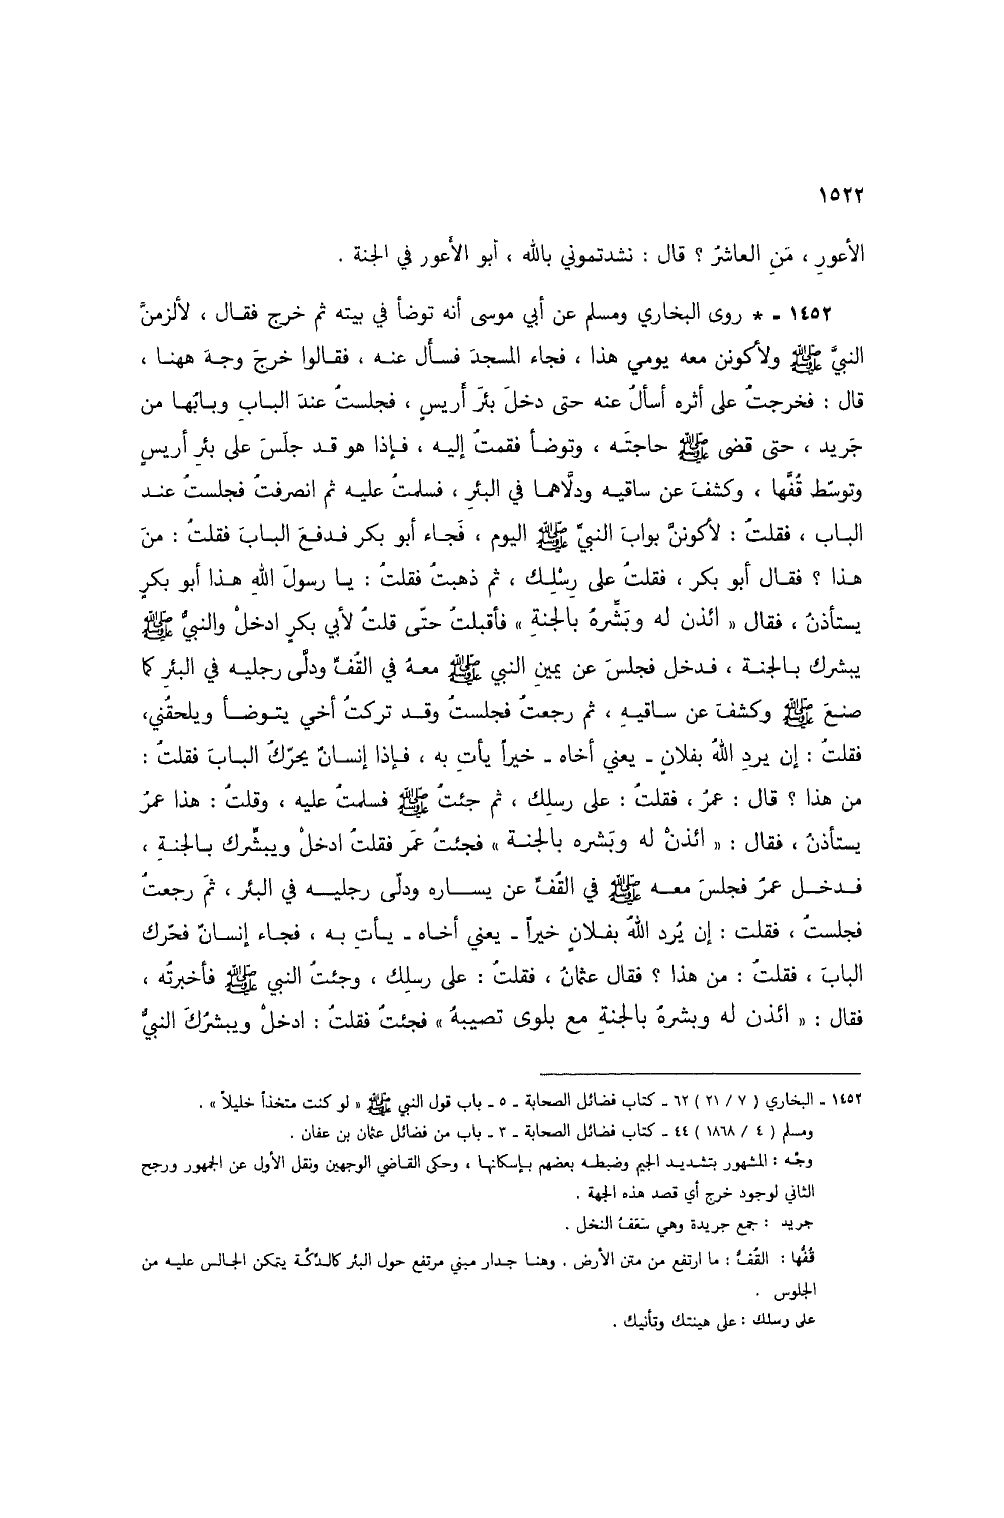 ١٥٢٢
الأعورِ ، مَنِ العاشرُ ؟ قال : نشدتموني بالله ، أبو الأَعور في الجنة .
١٤٥٢ - * روى البخاري ومسلم عن أبي موسى أنه توضأ في بيته ثم خرج فقال ، لألزمنَّ
النبيَّ ﷺ ولأكونن معه يومي هذا ، فجاء المسجدَ فسأل عنه ، فقالوا خرجَ وجهَ ههنا ،
قال : فخرجتُ على أثره أسألُ عنه حتى دخلَ بئرَ أريسٍ ، فجلستُ عندَ البابِ وبابُها من
جَريد ، حتى قضى ﷺ حاجتَه ، وتوضأ فقمتُ إليه ، فإذا هو قد جلَسَ على بئرِ أريسٍ
وتوسّط قُفَّها ، وكشفَ عن ساقيه ودلَّاهما في البئرِ ، فسلمتُ عليه ثم انصرفتُ فجلستُ عند
الباب ، فقلتُ : لأكوننَّ بوابَ النبيِّ ﷺ اليوم ، فَجاء أبو بكر فدفعَ البابَ فقلتُ : منَ
هذا ؟ فقال أبو بكر ، فقلتُ على رِسْلِك ، ثم ذهبتُ فقلتُ : يا رسولَ اللهِ هذا أبو بكرٍ
يستأذنُ ، فقال « ائذن له وبَشِّرهُ بالجنةِ » فأقبلتُ حتّى قلتُ لأبي بكرٍ ادخلْ والنبيُّ ﷺ
يبشرك بالجنة ، فدخل فجلسَ عن يمينِ النبي ﷺ معهُ في القُفِّ ودلَّى رجليه في البئرِ كما
صنعَ ﷺ وكشفَ عن ساقيهِ ، ثم رجعتُ فجلستُ وقد تركتُ أخي يتوضأ ويلحقُني،
فقلتُ : إن يردِ اللهُ بفلانٍ - يعني أخاه - خيراً يأتِ به ، فإذا إنسانٌ يحرّكُ البابَ فقلتُ :
من هذا ؟ قال : عمرُ ، فقلتُ : على رسلِك ، ثم جئتُ ﷺ فسلمتُ عليه ، وقلتُ : هذا عمرُ
يستأذنُ ، فقال : « ائذنْ له وبَشره بالجنة » فجئتُ عمَر فقلتُ ادخلْ ويبشِّرك بالجنةِ ،
فدخل عمرُ فجلسَ معه ﷺ في القُفِّ عن يساره ودلّى رجليه في البئر ، ثمَ رجعتُ
فجلستُ ، فقلت : إن يُرد اللهُ بفلانٍ خيراً - يعني أخاه - يأتِ به ، فجاء إنسانٌ فحّرك
البابَ ، فقلتُ : من هذا ؟ فقال عثمانُ ، فقلتُ : على رسلِك ، وجئتُ النبي ﷺ فأخبرتُه ،
فقال : « ائذن له وبشرهُ بالجنةِ مع بلوى تصيبهُ » فجئتُ فقلتُ : ادخلْ ويبشرُكَ النبيُّ
١٤٥٢ - البخاري ( ٧ / ٢١ ) ٦٢ - كتاب فضائل الصحابة - ٥ - باب قول النبي ﷺ « لو كنت متخذاً خليلاً » .
ومسلم ( ٤ / ١٨٦٨ ) ٤٤ - كتاب فضائل الصحابة - ٣ - باب من فضائل عثمان بن عفان .
وجَّه : المشهور بتشديد الجيم وضبطه بعضهم بإسكانها ، وحكى القاضي الوجهين ونقل الأول عن الجمهور ورجح
الثاني لوجود خرج أي قصد هذه الجهة .
جريد : جمع جريدة وهي سَعَفُ النخل .
قُفُّها : القُفُّ : ما ارتفع من متن الأرض . وهنا جدار مبني مرتفع حول البئر كالدّكّة يتمكن الجالس عليه من
الجلوس .
على رسلك : على هينتك وتأنيك .